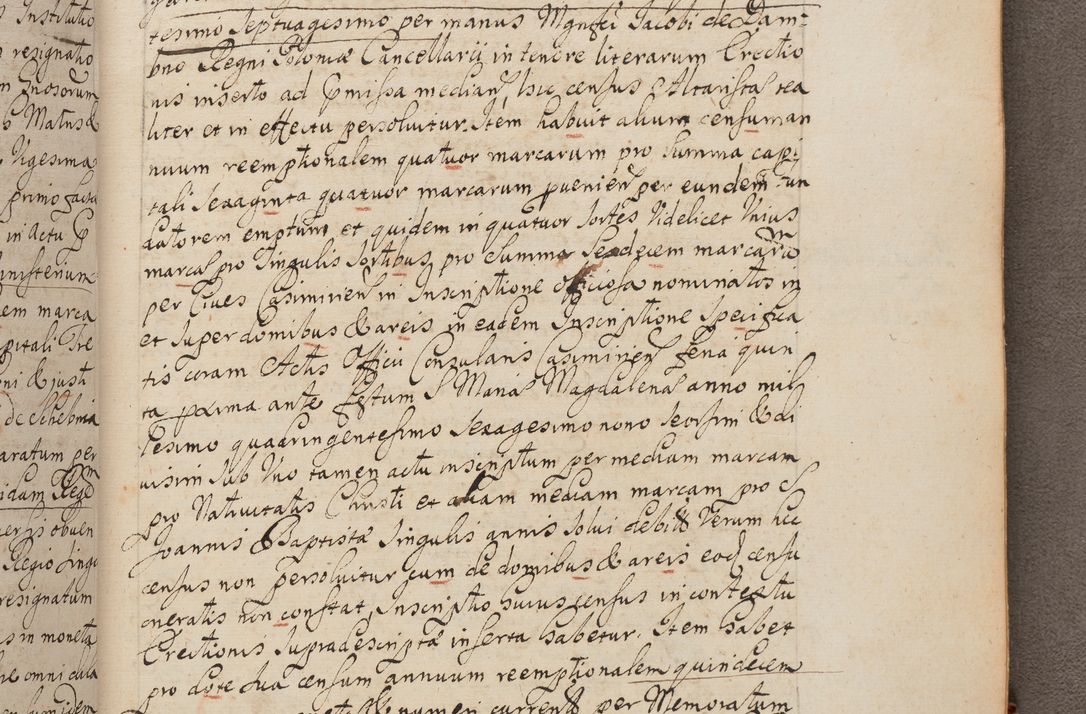 tesimo Septuagesimo per manus Mgnfci Jacobi de Dam=
bno Regni Poloniæ Cancellarii in tenore literarum Erectio
nis inserto ad præmissa median, hic census Altaristæ rea
liter et in effectu persolvitur. Item habuit alium censum an
nuum reemptionalem quatuor marcarum pro summa capi
tali sexaginta quatuor marcarum provenien per eundem Fun
datorem emptum et quidem in quatuor sortes videlicet unius
marcæ pro singulis sortibus pro summa sedecem marcaru
per Cives Casimirien in Inscriptione officiosa nominatos in
et super domibus & areis in eadem Inscriptione specifica
tis coram Actis Officii Consularis Casimirien feria quin
ta proxima ante Festum S Mariæ Magdalenæ anno mil
lesimo quadringentesimo sexagesimo nono seorsim & di
visim sub uno tamen actu inscriptum per mediam marcam
pro Nativitatis Christi et aliam mediam marcam pro S
Joannis Baptistæ singulis annis solvi debitis Verum hic
census non persolvitur cum de domibus & areis eod censu
oneratis non constat, Inscriptio huius census in contextu
Erectionis supradescriptæ inserta habetur. Item habet
pro dote sua censum annuum reemptionalem quindecem
numeri currentis per Memoratum
s Institutio
resignatio
Vigesima
primo facta
in Actu
em marca
oni & justi
aratum per
Regio
resignatum
is in moneta